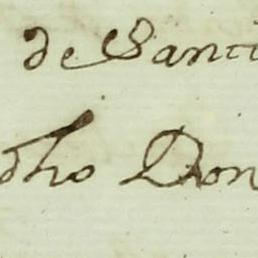 de Santi
dho Don